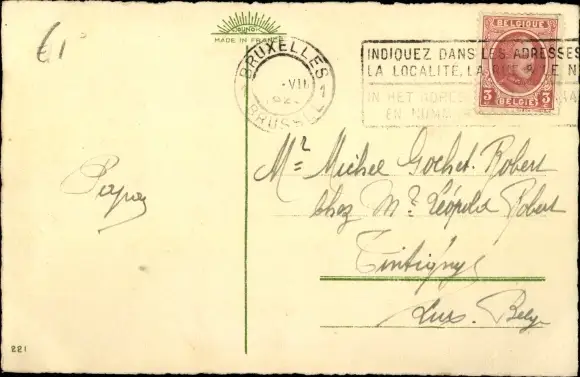 61
MADE IN FRANCE
BRUXELLES 1
VII
BRUSSEL 1
INDIQUEZ DANS LES ADRESSES
LA LOCALITÉ, LA RUE & LE N
IN HET ADRES
EN NUMM
BELGIQUE
3 BELGIË 3
Papa
Mr Michel Gochet-Robert
chez Mr Léopold Robert
Tintigny
Lux. Belg.
221